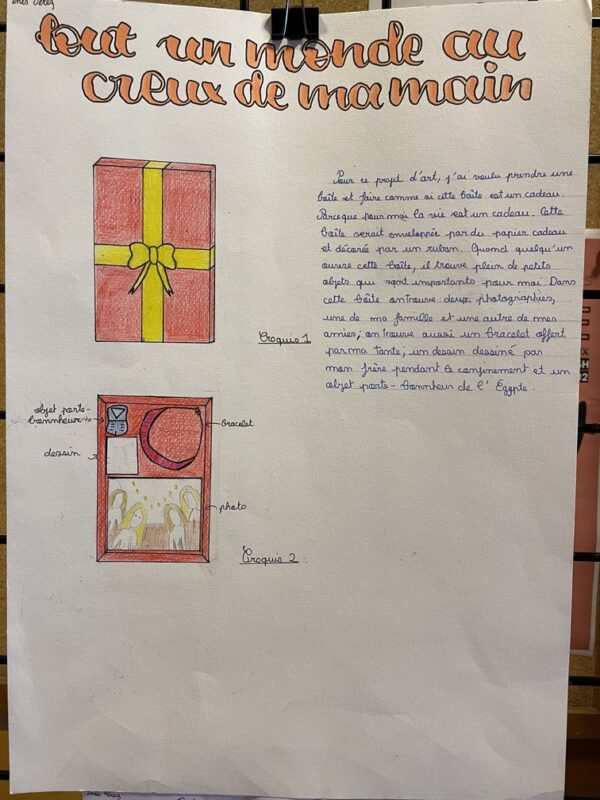 tout un monde au
creux de ma main
Pour ce projet d'art, j'ai voulu prendre une
boîte et faire comme si cette boîte est un cadeau.
Parceque pour moi la vie est un cadeau. Cette
boîte serait enveloppée par du papier cadeau
et décorée par un ruban. Quand quelqu'un
ouvre cette boîte, il trouve plein de petits
objets qui sont importants pour moi. Dans
cette boîte on trouve: deux photographies,
une de ma famille et une autre de mes
amies, on trouve aussi un bracelet offert
par ma tante, un dessin dessiné par
mon frère pendant le confinement et un
objet porte-bonheur de l'Egypte.
Croquis 1
objet porte-
bonnheur
bracelet
dessin
photo
Croquis 2